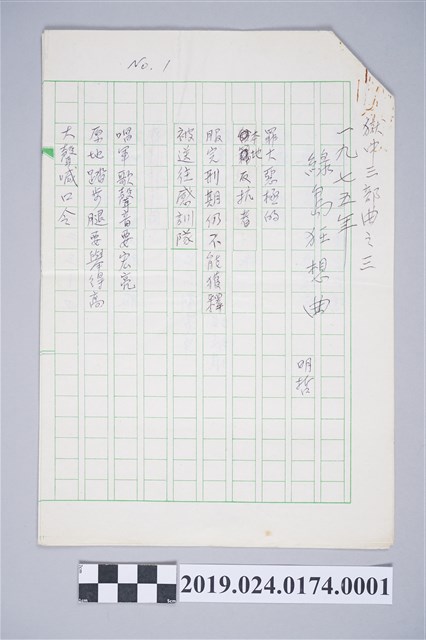 No. 1
獄中三部曲之三
一九七五年
綠島狂想曲
明哲
罪大惡極的
本地反抗者
服完刑期仍不能獲釋
被送往感訓隊
唱軍歌聲音要宏亮
原地踏步腿要舉得高
大聲喊口令
2019.024.0174.0001